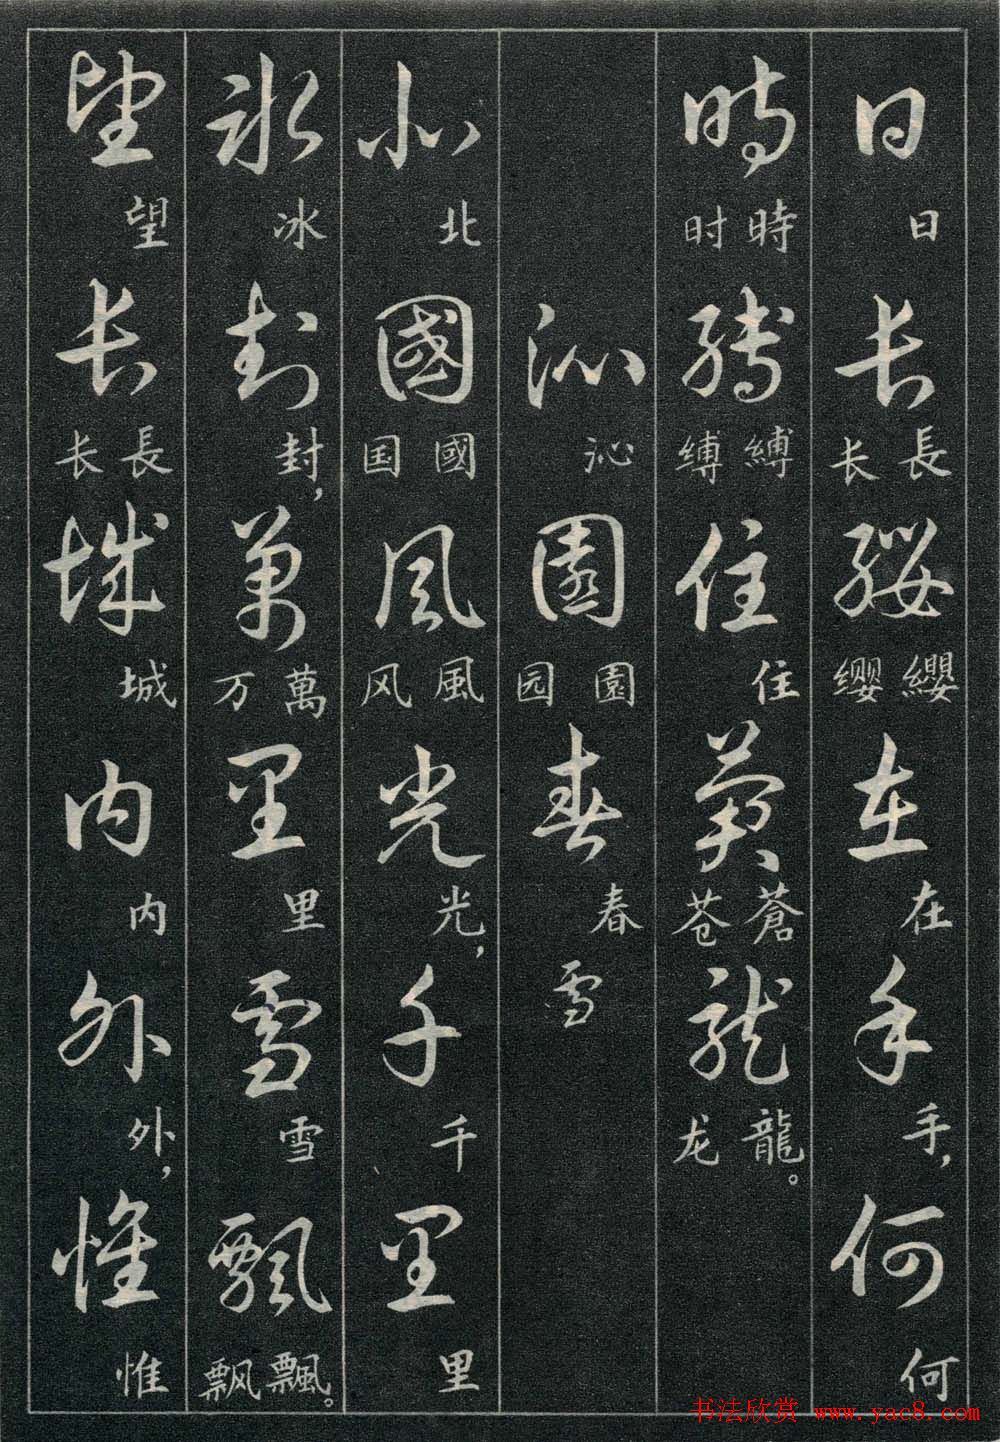 日长缨在手何
日長长纓缨在手，何
時缚住蒼龙
時时縛缚住蒼苍龍龙。
沁園春雪
沁園园春
北國风光千里
北國国風风光，千里
冰封萬里雪飘
冰封，萬万里雪飄飘。
望长城内外惟
望長长城内外，惟
书法欣赏 www.yac8.com